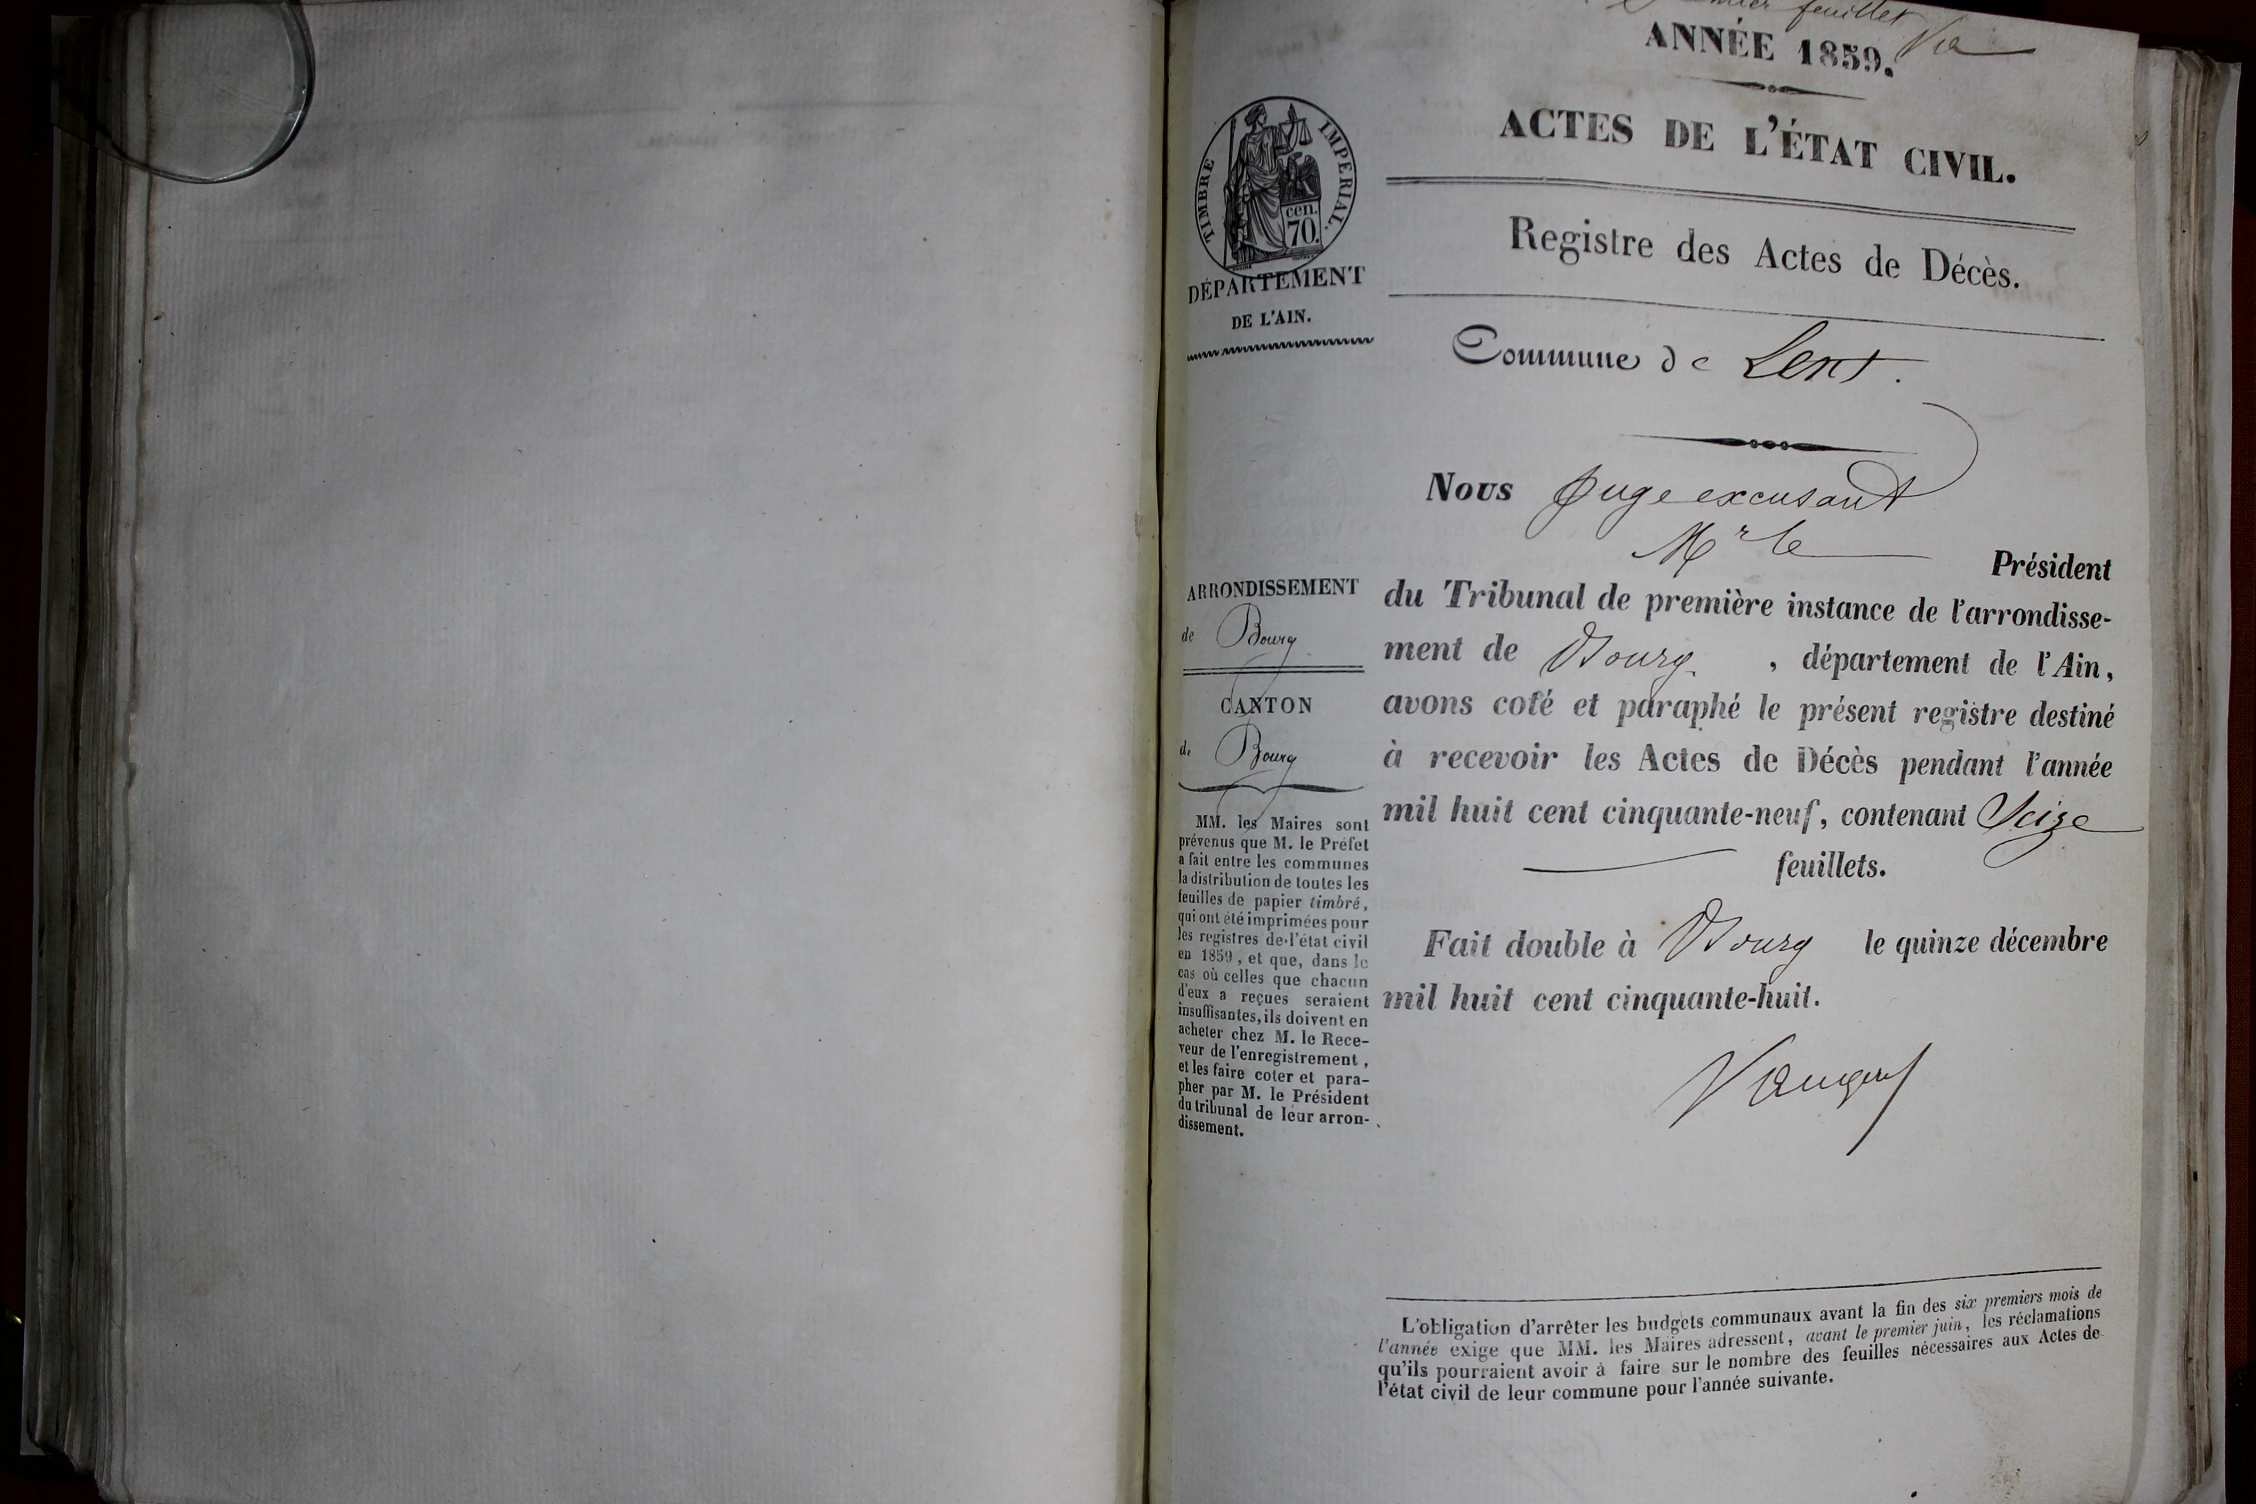 feuillet
ANNÉE 1859.
ACTES DE L'ÉTAT CIVIL.
Registre des Actes de Décès.
Commune de Lent.
TIMBRE IMPERIAL.
cen.
70.
DÉPARTEMENT
DE L'AIN.
ARRONDISSEMENT
de Bourg
CANTON
de Bourg
MM. les Maires sont
prévenus que M. le Préfet
a fait entre les communes
la distribution de toutes les
feuilles de papier timbré,
qui ont été imprimées pour
les registres de l'état civil
en 1859, et que, dans le
cas où celles que chacun
d'eux a reçues seraient
insuffisantes, ils doivent en
acheter chez M. le Rece-
veur de l'enregistrement,
et les faire coter et para-
pher par M. le Président
du tribunal de leur arron-
dissement.
Nous Juge excusant
Mr le Président
du Tribunal de première instance de l'arrondisse-
ment de Bourg, département de l'Ain,
avons coté et paraphé le présent registre destiné
à recevoir les Actes de Décès pendant l'année
mil huit cent cinquante-neuf, contenant Seize
feuillets.
Fait double à Bourg le quinze décembre
mil huit cent cinquante-huit.
L'obligation d'arrêter les budgets communaux avant la fin des six premiers mois de
l'année exige que MM. les Maires adressent, avant le premier juin, les réclamations
qu'ils pourraient avoir à faire sur le nombre des feuilles nécessaires aux Actes de
l'état civil de leur commune pour l'année suivante.